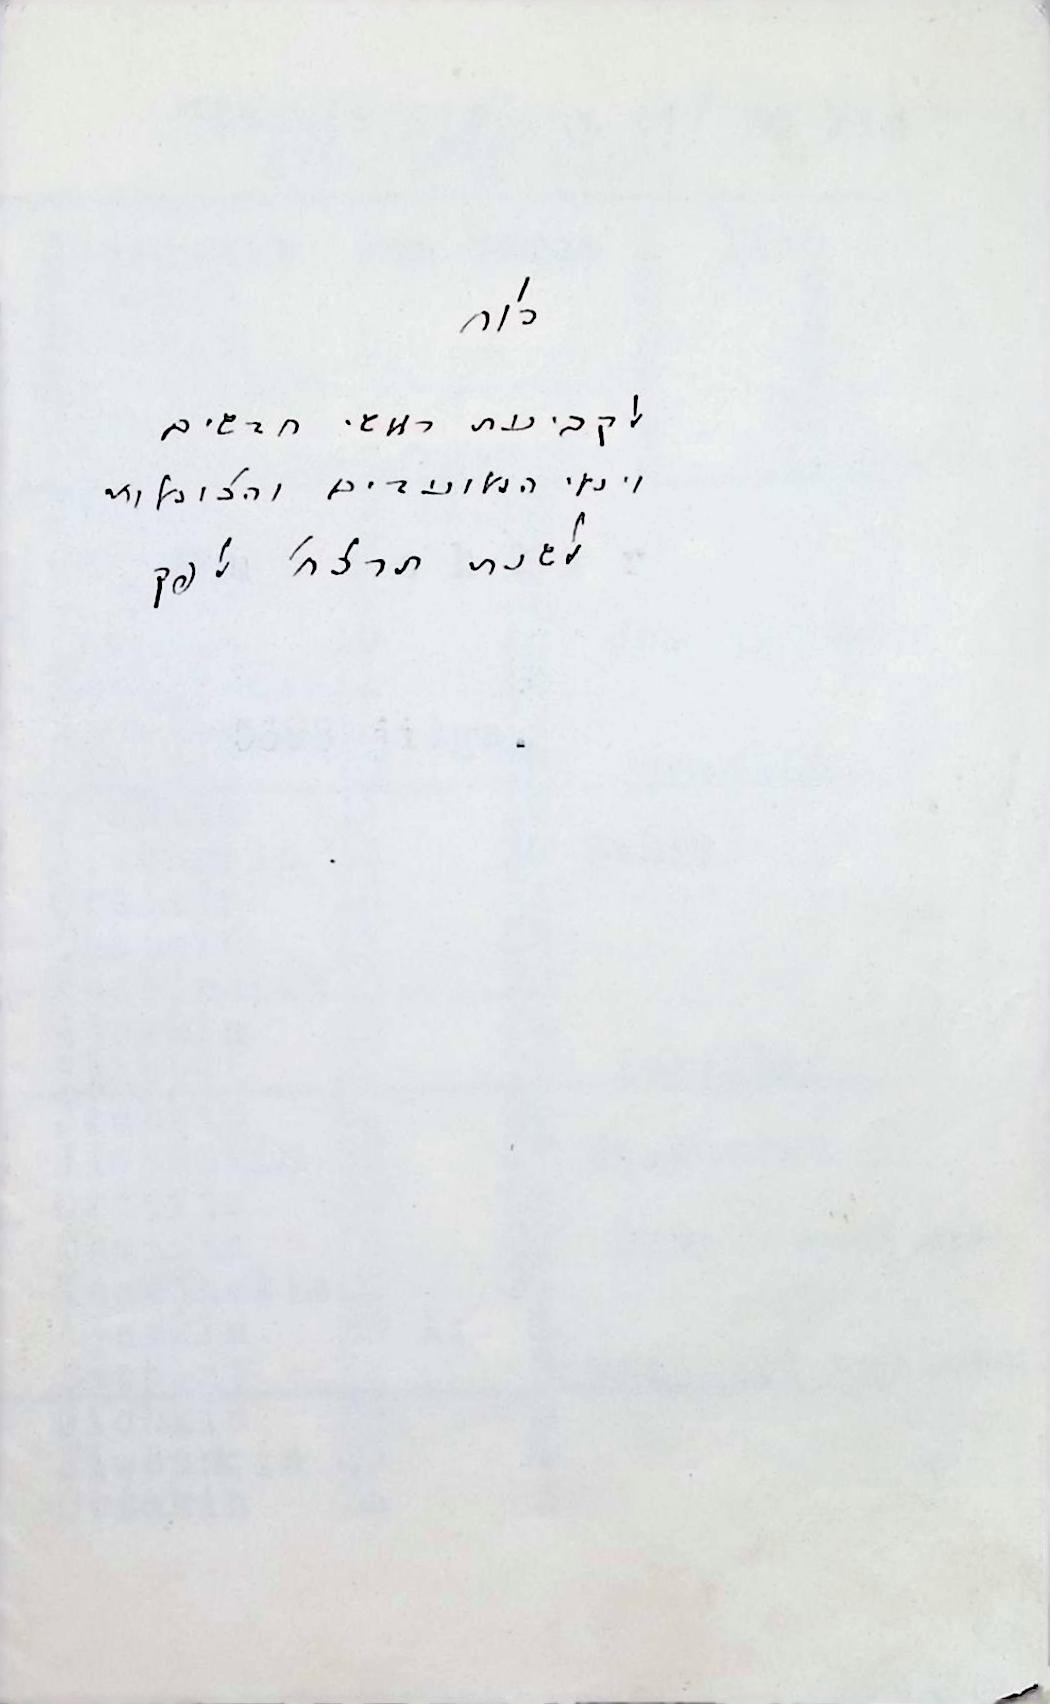 לוח
לקביעת ראשי חדשים
וימי המועדים והצומות
לשנת תרצח לפק